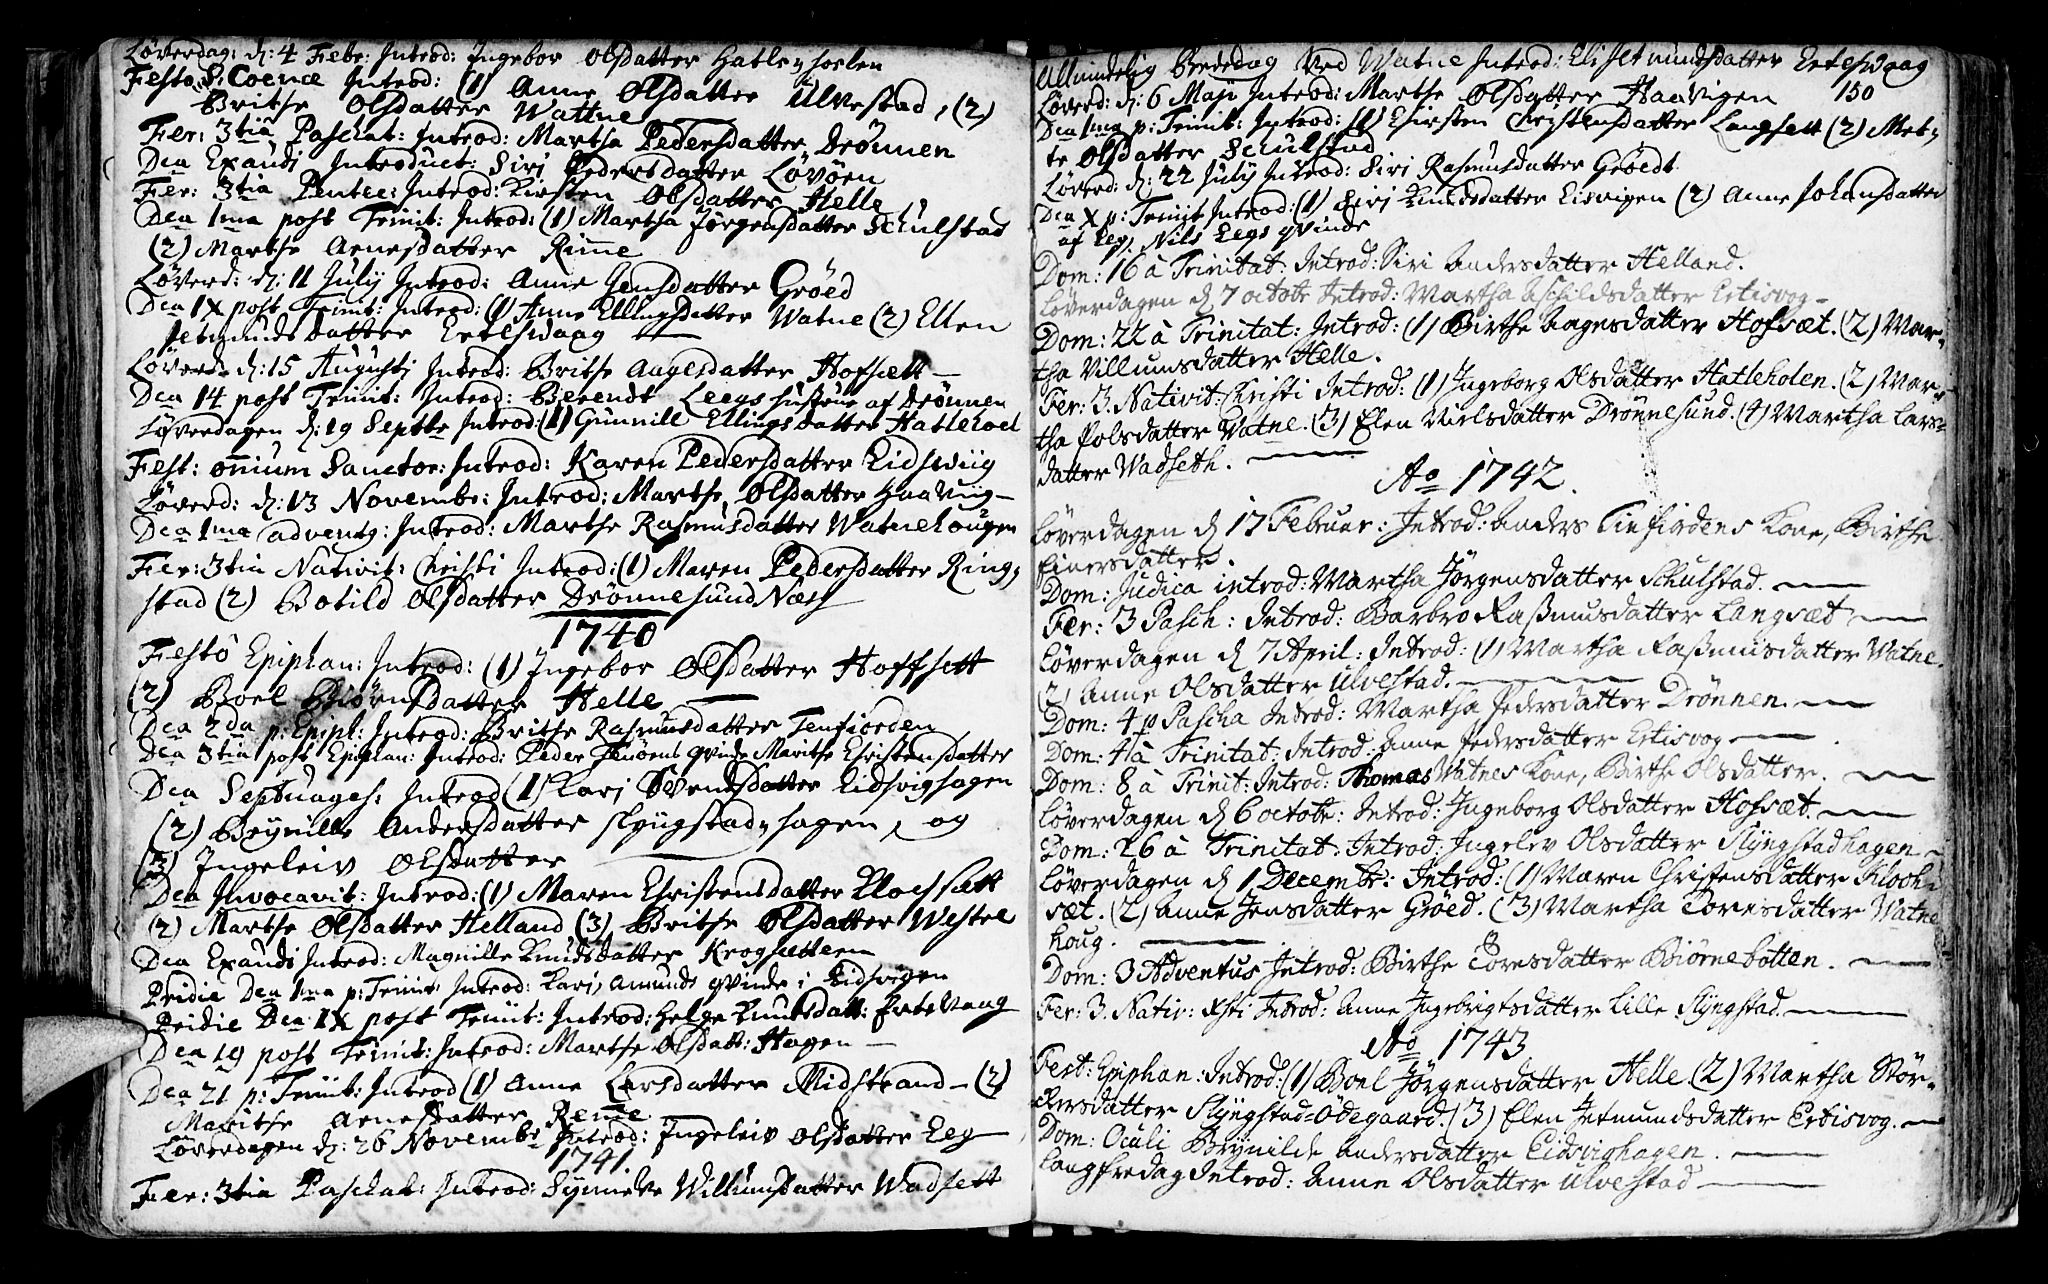 Løverdag: d: 4 Febr: Introd: Ingebor Olsdatter Hatlehoelen
Festo S. Coenæ Introd: (1) Anne Olsdatter Ulvestad, (2)
Brithe Olsdatter Watne
Fer: 3tia Paschat: Introd: Martha Pedersdatter Drönnen
Dca Exaudi Introduct: Siri Pedersdatter Lövöen
Fer: 3tia Pentec: Introd: Kirsten Olsdatter Helle
Dca 1ma post Trinit: Introd: (1) Martha Jørgensdatter Schulstad
(2) Marthe Arnesdatter Rime
Løverd: d: 11 July Introd: Anne Jensdatter Grøed
Dca IX post Trinit: Introd: (1) Anne Ellingsdatter Watne (2) Ellen
Jetmundsdatter Ertesvaag
Løverd: d: 15 Augusti Introd: Brithe Aagesdatter Hofsett
Dca 14 post Trinit: Introd: Berendt Leegs hustrue af Drönnen
Løverdagen d: 19 Septbr Introd: (1) Gunnill Ellingsdatter Hatlehoel
Fest: omnium Sanctor: Introd: Karen Pedersdatter Eidsviig
Løverd: d: 13 Novembr: Introd: Marthe Olsdatter Haaviig
Dca 1ma advents: Introd: Marthe Rasmusdatter Watnehougen
Fer: 3tia Nativit: Christi Introd: (1) Maren Pedersdatter Ring,
stad (2) Botild Olsdatter Drönnesund Næss
1740
Festo Epiphan: Introd: (1) Ingebor Olsdatter Hoffsett
(2) Boel Biörnsdatter Helle
Dca 2da p: Epiph: Introd: Brithe Rasmusdatter Tenfiorden
Dca 3tia post Epiphan: Introd: Peder qvinde Marithe Christensdatter
Dca Septuages: Introd (1) Kari Svendsdatter Eidsvighagen
(2) Brynille Andersdatter Slyngstad,hagen, og
(3) Ingeleiv Olsdatter
Dca Invocavit: Introd: (1) Maren Christensdatter Klochsett
(2) Marthe Olsdatter Helland (3) Brithe Olsdatter Westre
Dca Exaudi Introd: Magnille Knudsdatter Krogsetteren
Pridie Dca 1ma p: Trinit: Introd: Kari, Amunds qvinde i Eidsvigen
Pridie Dca IX post Trinit: Introd: Helge Knutsdatt: Ertevaag
Dca 19 post Trinit: Introd: Marthe Olsdatt: Hagen
Dca 21 p: Trinit: Introd (1) Anne Larsdatter Midstrand - (2)
Marithe Arnesdatter Reme
Løverdagen d: 26 Novembr Introd: Ingeleiv Olsdatter Leg
1741.
Fer: 3tia Paschat: Introd: Synneve Willumsdatter Wadsett
Allmindelig Bededag ved Watne Introd: Elis Jetmundsdatter Ertesvaag
150
Løverd: d: 6 Maji Introd: Marthe Olsdatter Haavigen
Dca 1ma p: Trinit: Introd: (1) Chirsten Christensdatter Langsett (2) Met,
te Olsdatter Schulstad
Løverd: d: 22 July Introd: Siri Rasmusdatter Grøedt
Dca X p: Trinit Introd: (1) Siri Knudsdatter Eisvigen (2) Anne Johansdatter
af Leg, Nils Legs qvinde
Dom: 16 à Trinitat: Introd: Siri Andersdatter Helland.
Løverdagen d 7 octobr Introd: Martha Aschildsdatter Ertisvog
Dom: 22 à Trinitat: Introd: (1) Birthe Aagesdatter Hofsæt. (2) Mar-
tha Villumsdatter Helle.
Fer: 3. Nativit: Christi Introd: (1) Ingeborg Olsdatter Hatleholen. (2) Mar-
tha Polsdatter Watne. (3) Elen Nielsdatter Drönnesund. (4) Martha Lars=
datter Wadseth.
Ao 1742.
Løverdagen d 17 Februar: Introd: Anders Tinfiordens Kone, Birthe
Einersdatter.
Dom: Judica introd: Martha Jörgensdatter Schulstad.
Fer: 3 Pasch: Introd: Barbro Rasmusdatter Langsæt
Løverdagen d 7 April: Introd: (1) Martha Rasmusdatter Watne.
(2) Anne Olsdatter Ulvestad.
Dom: 4 p Pascha Introd: Martha Pedersdatter Drönnen.
Dom: 4 à Trinitat: Introd: Anne Pedersdatter Ertisvog
Dom: 8 à Trinit: Introd: Thomas Watnes Kone, Birthe Olsdatter.
Løverdagen d 6 octobr: Introd: Ingeborg Olsdatter Hofsæt.
Dom: 26 à Trinitat: Introd: Ingelev Olsdatter Slyngstadhagen
Løverdagen d 1 Decembr: Introd: (1) Maren Christensdatter Klock=
sæt. (2) Anne Jensdatter Grøed. (3) Martha Toresdatter Watne
houg.
Dom: 3 Adventus Introd: Birthe Toresdatter Biörnebotten.
Fer: 3. Nativ: Xsti Introd: Anne Ingebrigtsdatter Lille Slyngstad.
Ao 1743
Fest: Epiphan: Introd: (1) Boel Jörgensdatter Helle (2) Martha Stör-
kersdatter Slyngstad=Ödegaard. (3) Elen Jetmundsdatter Ertisvog.
Dom: Oculi Brynilde Andersdatter Eidvighagen.
Langfredag Introd: Anne Olsdatter Ulvestad